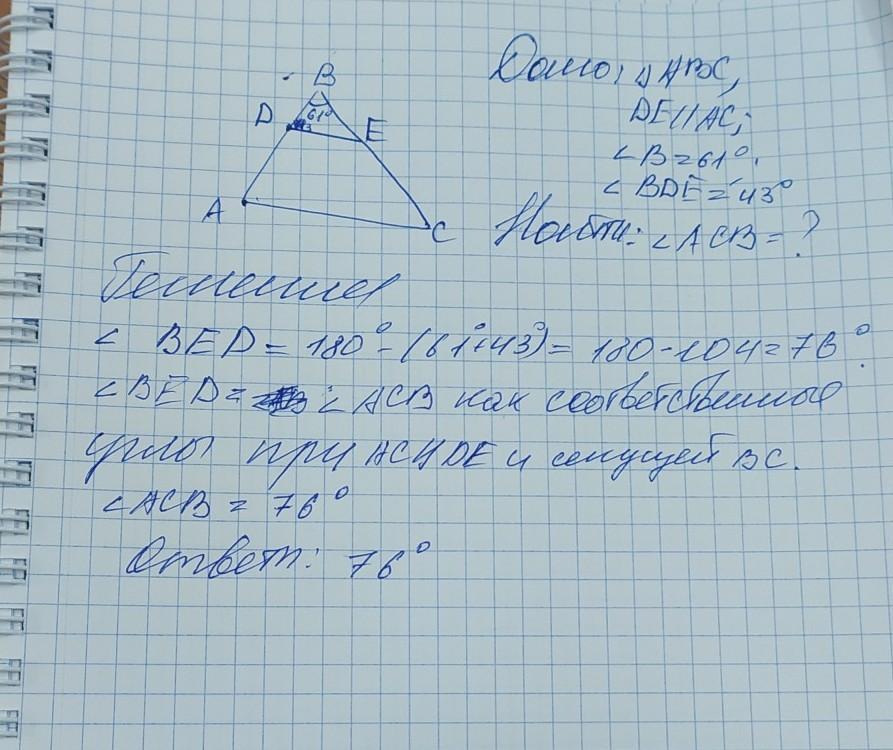 B
61°
D
E
A
C
Дано: △ABC,
DE//AC;
∠B=61°.
∠BDE=43°
Найти: ∠ACB=?
Решение
∠ BED = 180° - (61°+43°) = 180-104=76°.
∠BED = ∠ACB как соответственные
углы при AC//DE и секущей BC.
∠ACB = 76°
Ответ: 76°